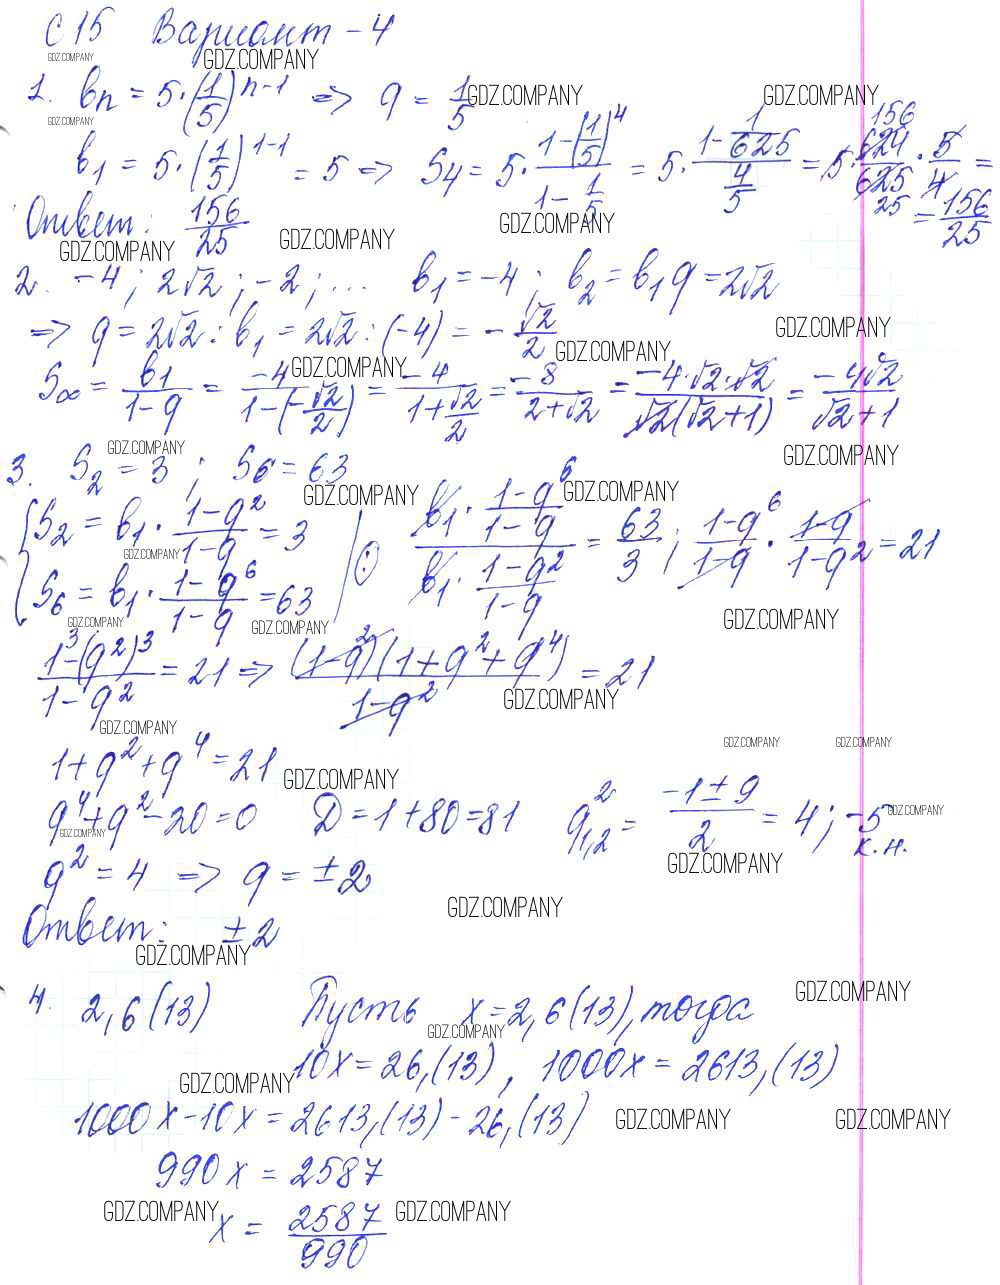 С 15 Вариант - 4
1. bn = 5·(1/5)^(n-1) => q = 1/5
b₁ = 5·(1/5)^(1-1) = 5 => S₄ = 5·(1-(1/5)^4)/(1-1/5) = 5·(1-1/625)/(4/5) = 5·624/625·5/4 = 156 25 = 156/25
Ответ: 156/25
2. -4; 2√2; -2; ... b₁ = -4; b₂ = b₁q = 2√2
=> q = 2√2 : b₁ = 2√2 : (-4) = -√2/2
S∞ = b₁/(1-q) = -4/(1-(-√2/2)) = -4/(1+√2/2) = -8/(2+√2) = -4·√2·√2/(√2(√2+1)) = -4√2/(√2+1)
3. S₂ = 3; S₆ = 63
{ S₂ = b₁·(1-q²)/(1-q) = 3
S₆ = b₁·(1-q⁶)/(1-q) = 63 | : (b₁·(1-q⁶)/(1-q))/(b₁·(1-q²)/(1-q)) = 63/3; (1-q⁶)/(1-q)·(1-q)/(1-q²) = 21
(1³-(q²)³)/(1-q²) = 21 => (1-q²)(1+q²+q⁴)/(1-q²) = 21
1+q²+q⁴ = 21
q⁴+q²-20=0 D=1+80=81 q²₁,₂ = (-1±9)/2 = 4; -5 к.н.
q² = 4 => q = ±2
Ответ: ±2
4. 2,6(13) Пусть x=2,6(13), тогда
10x = 26,(13), 1000x = 2613,(13)
1000x-10x = 2613,(13) - 26,(13)
990x = 2587
x = 2587/990
GDZ.COMPANY